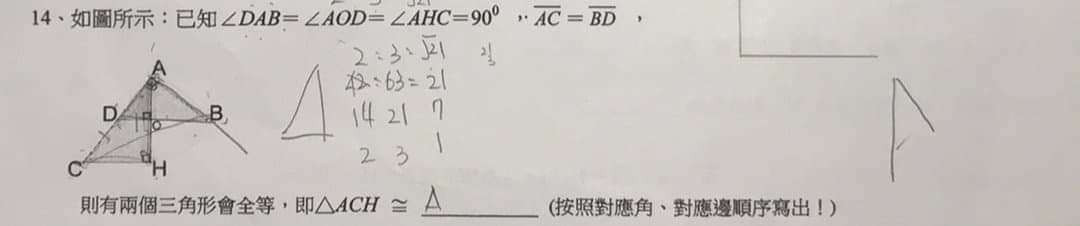 14、如圖所示：已知∠DAB=∠AOD=∠AHC=90⁰，AC=BD，
2:3:√21
42:63:21
14 21 7
2 3 1
A
D
B
O
C
H
則有兩個三角形會全等，即△ACH ≅ A (按照對應角、對應邊順序寫出！)